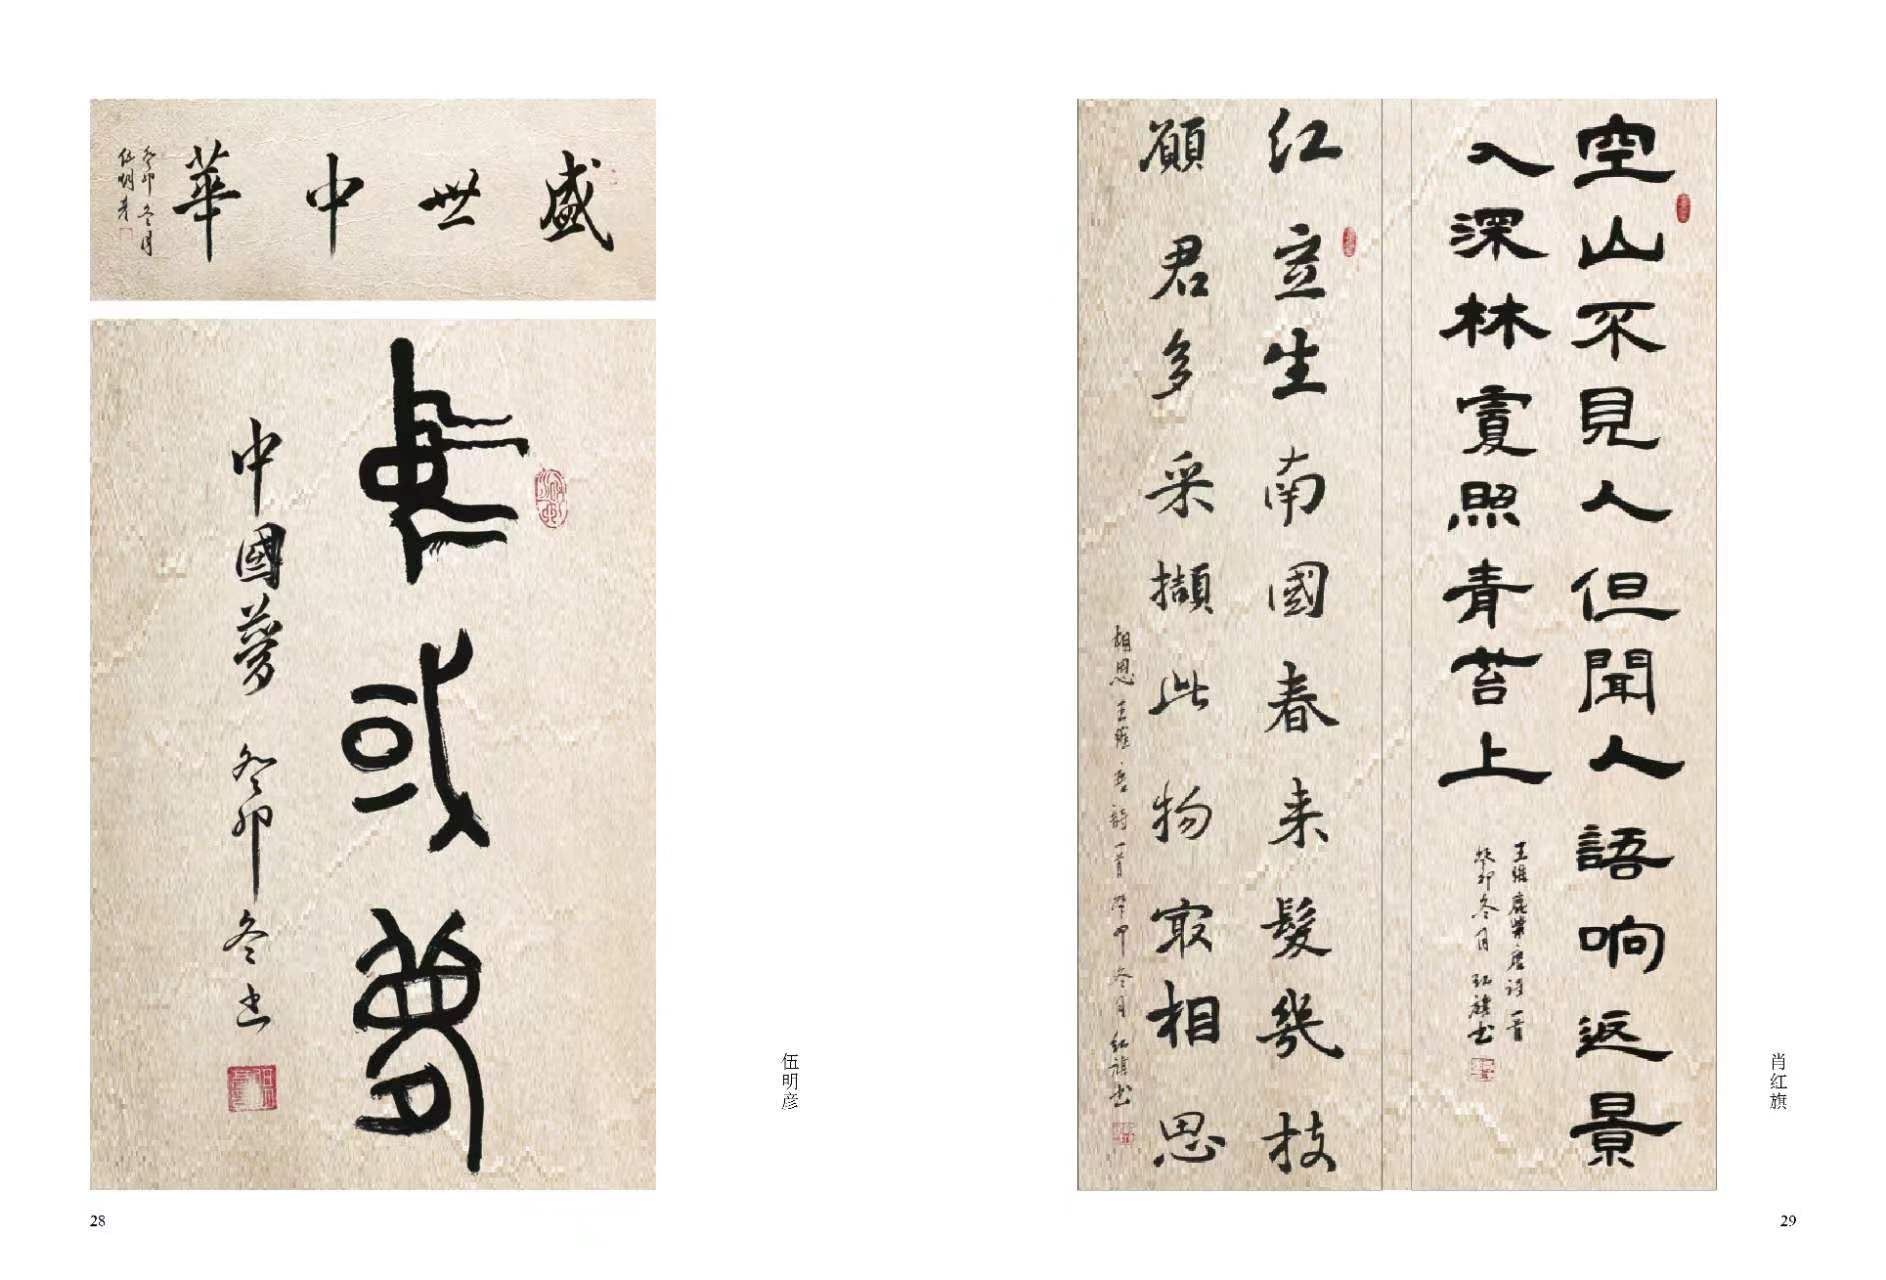 盛世中華
癸卯冬月
伍明彦
中或夢
中國夢 癸卯冬书
伍明彦
28
空山不見人但聞人語响返景
入深林照青苔上
王維鹿柴唐诗一首
癸卯冬月 红旗书
红豆生南國春来髮幾枝
願君多采擷此物最相思
相思 王維 唐詩一首 癸卯冬月 红旗书
肖红旗
29